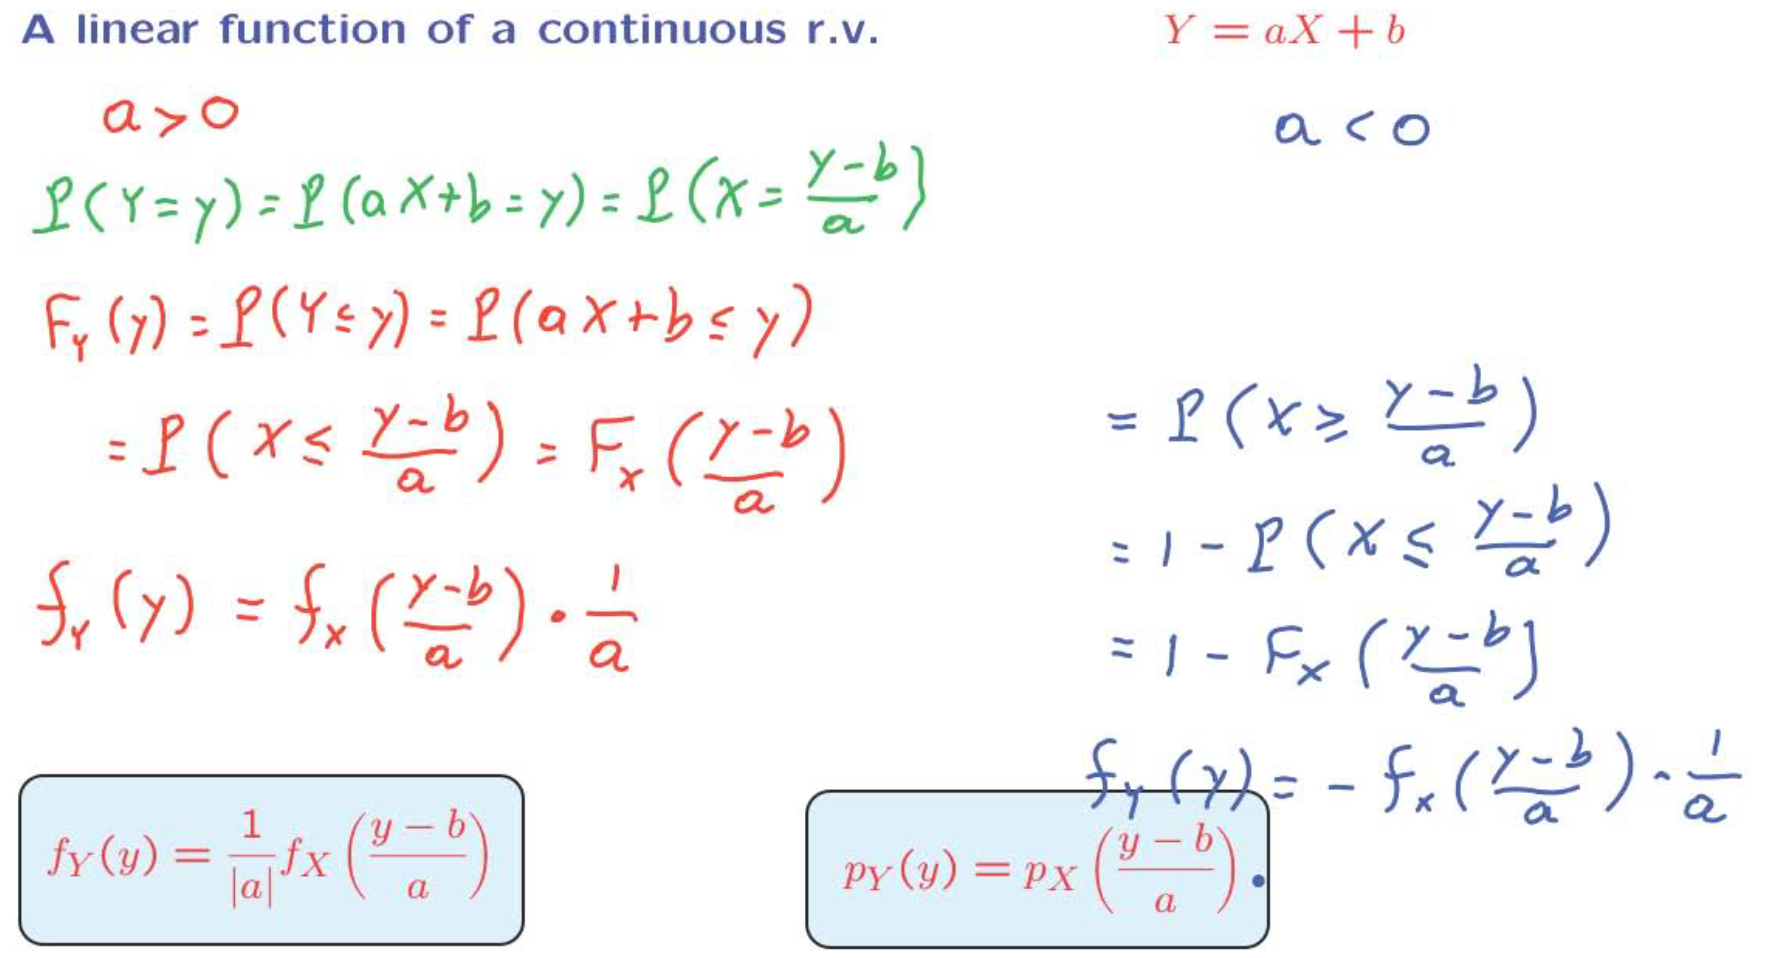 A linear function of a continuous r.v.
Y = aX + b
a > 0
P(Y = y) = P(aX + b = y) = P(X = \frac{y-b}{a})
F_Y(y) = P(Y ≤ y) = P(aX + b ≤ y)
= P(X ≤ \frac{y-b}{a}) = F_X(\frac{y-b}{a})
f_Y(y) = f_X(\frac{y-b}{a}) · \frac{1}{a}
a < 0
= P(X ≥ \frac{y-b}{a})
= 1 - P(X ≤ \frac{y-b}{a})
= 1 - F_X(\frac{y-b}{a})
f_Y(y) = - f_X(\frac{y-b}{a}) · \frac{1}{a}
f_Y(y) = \frac{1}{|a|} f_X(\frac{y-b}{a})
p_Y(y) = p_X(\frac{y-b}{a}).